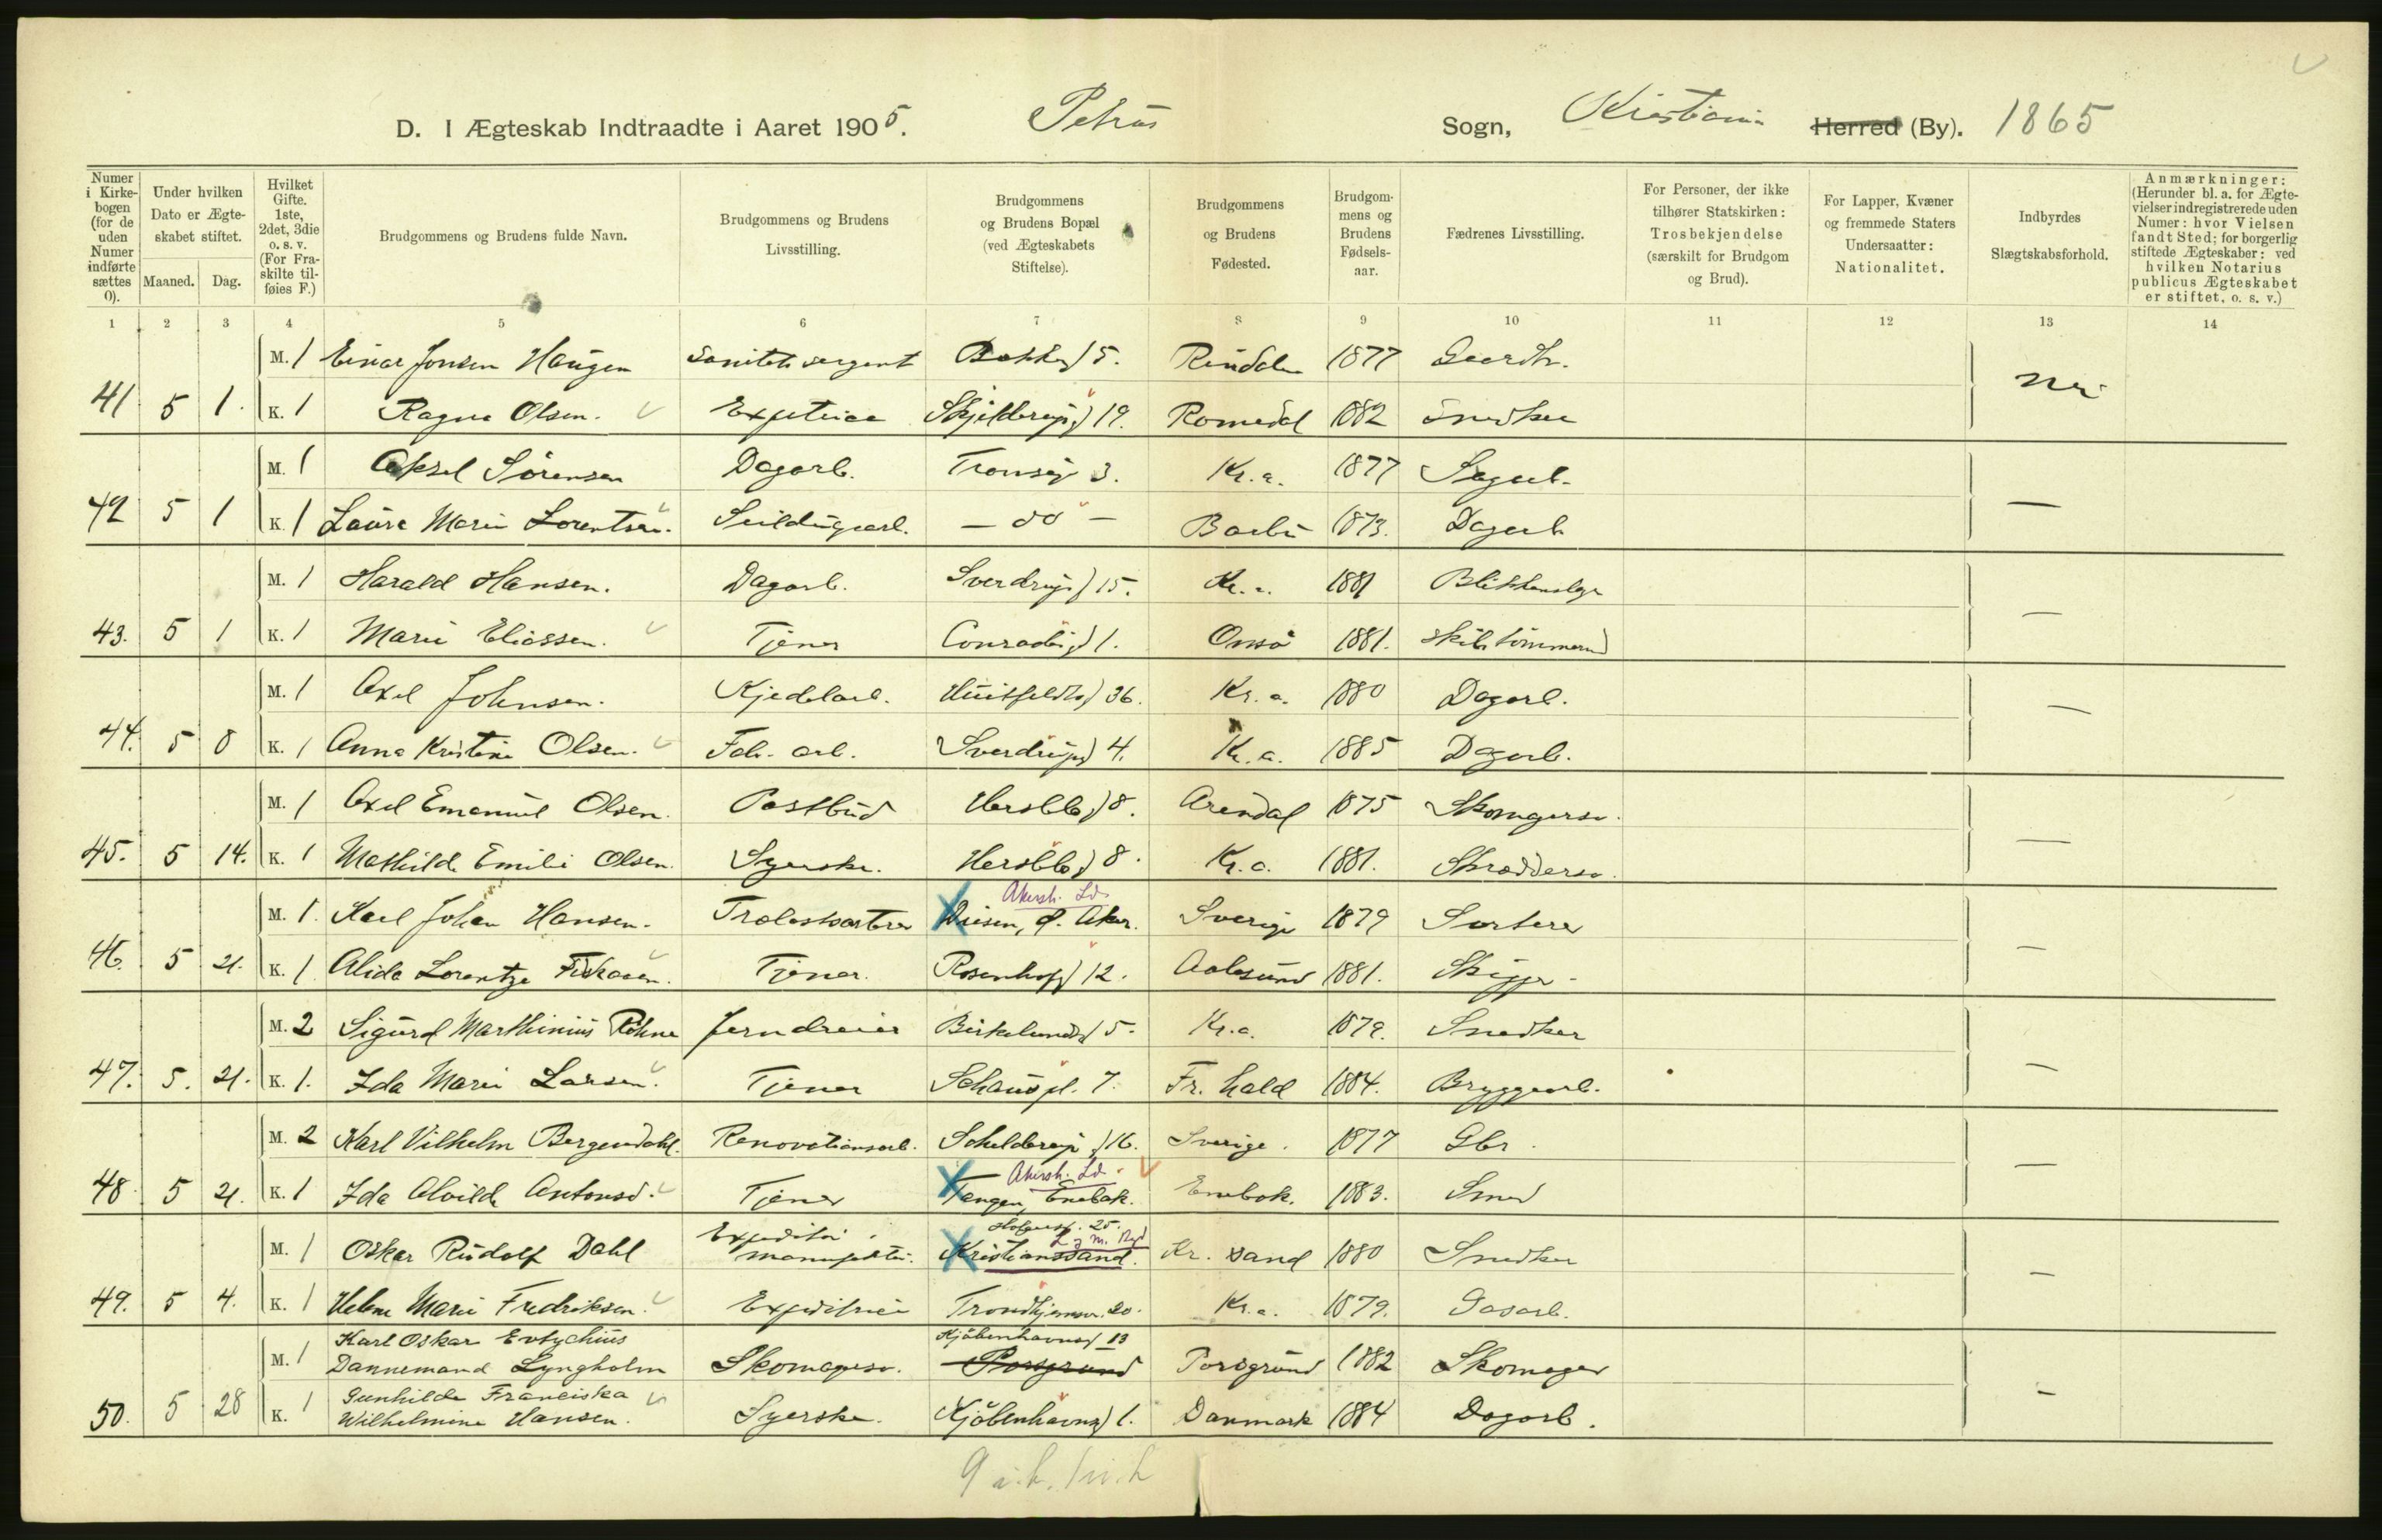 D. I Ægteskab Indtraadte i Aaret 1905. Petrus Sogn, Kristiania Herred (By). 1865
Numer i Kirkebogen (for de uden Numer indførte sættes 0).
Under hvilken Dato er Ægteskabet stiftet.
Maaned. Dag.
Hvilket Gifte. 1ste, 2det, 3die o. s. v. (For Fraskilte tilføies F.)
Brudgommens og Brudens fulde Navn.
Brudgommens og Brudens Livsstilling.
Brudgommens og Brudens Bopæl (ved Ægteskabets Stiftelse).
Brudgommens og Brudens Fødested.
Brudgommens og Brudens Fødselsaar.
Fædrenes Livsstilling.
For Personer, der ikke tilhører Statskirken: Trosbekjendelse (særskilt for Brudgom og Brud).
For Lapper, Kvæner og fremmede Staters Undersaatter: Nationalitet.
Indbyrdes Slægtskabsforhold.
Anmærkninger: (Herunder bl. a. for Ægtevielser indregistrerede uden Numer: hvor Vielsen fandt Sted; for borgerlig stiftede Ægteskaber: ved hvilken Notarius publicus Ægteskabet er stiftet, o. s. v.)
1 2 3 4 5 6 7 8 9 10 11 12 13 14
M. 1 Einar Jonsen Haugen Sanitetssergent 5. Rindalen 1877 Gaardbr.
41 5 1. K. 1 Ragna Olsen. Skjelderupsg 19. Romedal 1882 Snedker
M. 1 Aksel Sörensen Dagarb. Tromsög 3. Kr.a. 1877 Sagarb.
42 5 1 K. 1 Laura Marie Lorentsen. — do — Barbu 1873. Dagarb —
M. 1 Harald Hansen. Dagarb. Sverdrupsg 15. Kr.a. 1881 Blikkenslager
43. 5 1 K. 1 Marie Eliassen. Tjener Conradisg 1. Onsö 1881. Skibstömmermd —
M. 1 Axel Johnsen. Kjedelarb. Huitfeldtsg 36. Kr.a. 1880 Dagarb.
44. 5 8 K. 1 Anna Kristine Olsen. Fab. arb. Sverdrupsg 4. Kr.a. 1885 Dagarb. —
M. 1 Axel Emanuel Olsen. Postbud Herslebsg 8. Arendal 1875 Skomagersv.
45. 5 14. K. 1 Mathilde Emilie Olsen. Syerske. Herslebsg 8. Kr.a. 1881. Skräddersv. —
Akersh. Ld.
M. 1. Karl Johan Hansen. Disen, Ö. Aker. Sverige 1879 Sortere
46. 5 21. K. 1 Alida Lorentze Tjener. Rosenhofg 12. Aalesund 1881. Skipper —
M. 2 Sigurd Marthinius Röhne Jerndreier Birkelundsg 5. Kr.a. 1879. Snedker
47. 5. 21. K. 1. Ida Marie Larsen. Tjener Schaus pl. 7. Fr. hald 1884. Bryggearb. —
M. 2 Karl Vilhelm Bergendahl. Renovationsarb. Schelderups g 16. Sverige. 1877 Gbr.
Akersh. Ld.
48 5 21. K. 1 Ida Alvilde Antonsd. Tjener Tangen, Enebak. Enebak. 1883. Smed —
Holgersg. 25.
M. 1 Oskar Rudolf Dahl Expeditör i manufaktur. Kristianssand. Kr. sand 1880 Snedker
49. 5 4. K. 1 Helene Marie Fredriksen. Expeditrice Trondhjemsv. 20. Kr.a. 1879. Gasarb. —
Karl Oskar Evtychius Kjöbenhavnsg 13
M. 1 Dannemand Lyngholm Skomagersv. Porsgrund Porsgrund 1882 Skomager
Gunhilda Franciska
50. 5 28 K. 1 Wilhelmine Hansen. Syerske. Kjöbenhavnsg 1. Danmark 1884 Dagarb. —